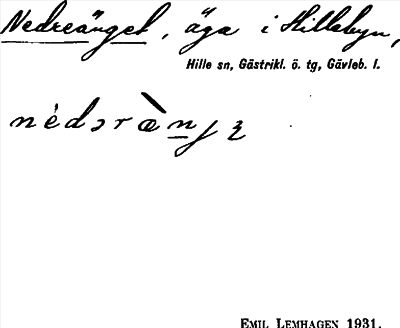 Nedreänget, äga i Hillebyn,
Hille sn, Gästrikl. ö. tg, Gävleb. l.
EMIL LEMHAGEN 1931.